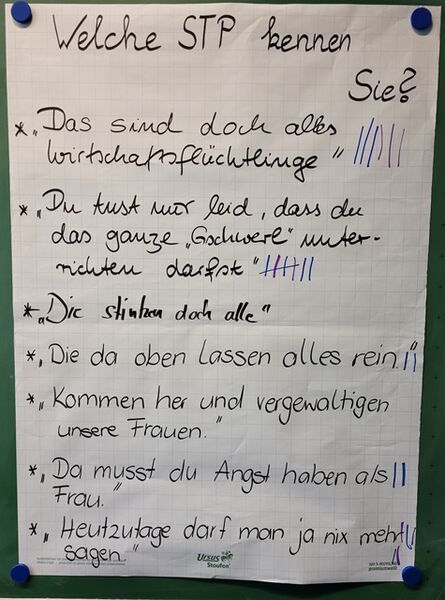 Welche STP kennen
Sie?
* „Das sind doch alles
Wirtschaftsflüchtlinge"
* „Du tust mir leid, dass du
das ganze „Gschwerl" unter-
richten darfst"
* „Die stinken doch alle"
* „Die da oben lassen alles rein."
* „Kommen her und vergewaltigen
unsere Frauen."
* „Da musst du Angst haben als
Frau."
* „Heutzutage darf man ja nix mehr
sagen."
Ursus
Staufen